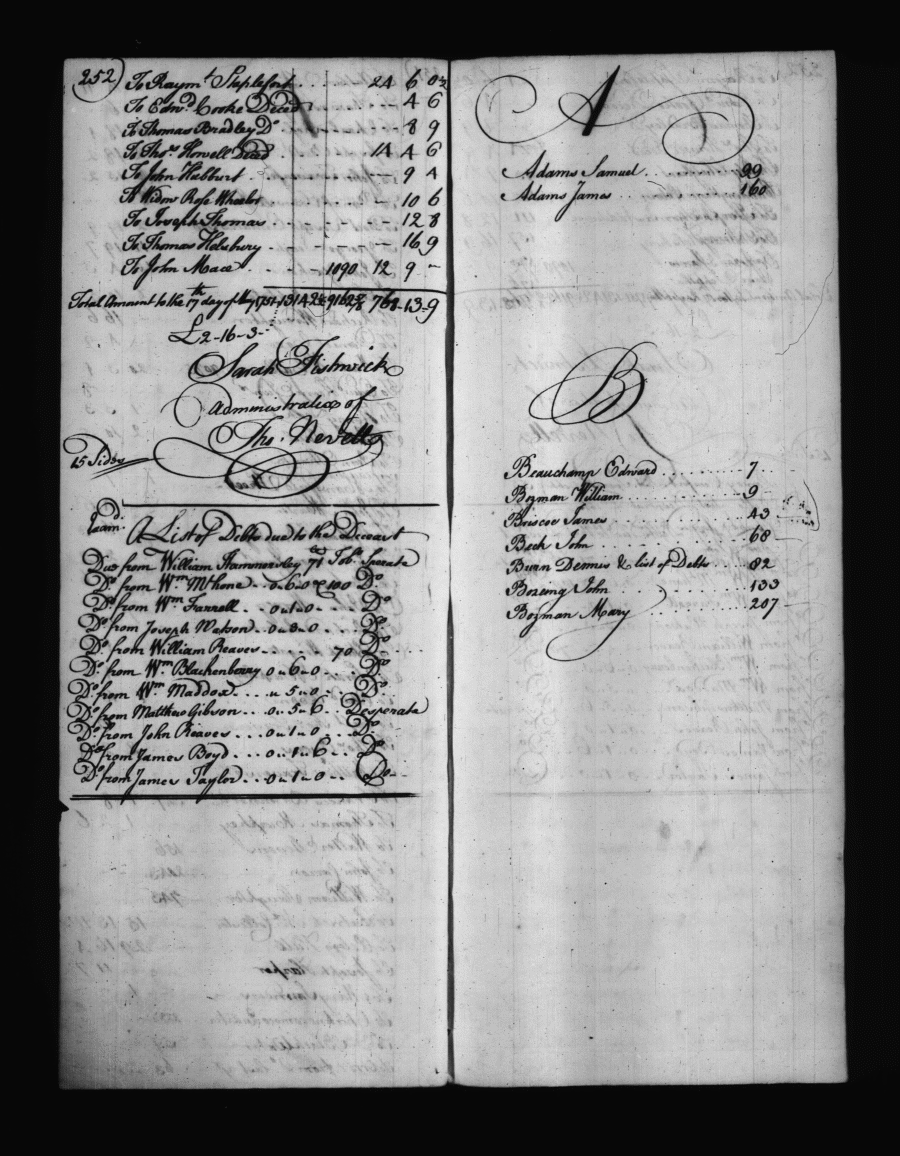 252
To Raym.t Staplefort .... 24 6 0½
To Edw.d Cooke Deced .... 4 6
To Thomas Bradley D.o .... 8 9
To Tho.s Howell Deced .... 14 4 6
To John Hubburt .... 9 4
To Widow Rose Wheeler .... 10 6
To Joseph Thomas .... 12 8
To Thomas Helsbury .... 16 9
To John Mace .... 1090 12 9 -
Total Amount to the 17th day of May 1751 768-13-9
£2-16-3-
Sarah Fishwick
Administratix of
Tho.s Nevett
15 Sides
Exam.d
A List of Debts due to the Deceas.t
Due from William Hammersley 71 Tob.o Sperate
D.o from W.m Mthone .. 0.6.0 & 100 D.o
D.o from W.m Farrell .. 0.1.0 .. D.o
D.o from Joseph Watson .. 0.3.0 ... D.o
D.o from William Reaves ..... 70 D.o
D.o from W.m Blackenberry 0.6.0 ... D.o
D.o from W.m Maddox ... 0 5.0 ... D.o
D.o from Matthew Gibson ... 0.5.6 .. Desperate
D.o from John Reaves .. 0.1.0 ... D.o
D.o from James Boyd ... 0.1.6 ... D.o
D.o from James Taylor ... 0.1.0 ... D.o
A
Adams Samuel .... 99
Adams James .... 160
B
Beauchamp Edward ....... 7
Bozman William ....... 9
Briscoe James ....... 43
Beck John ....... 68
Burn Dennis & list of Debts ... 82
Bozeing John ....... 133
Bozman Mary ....... 207